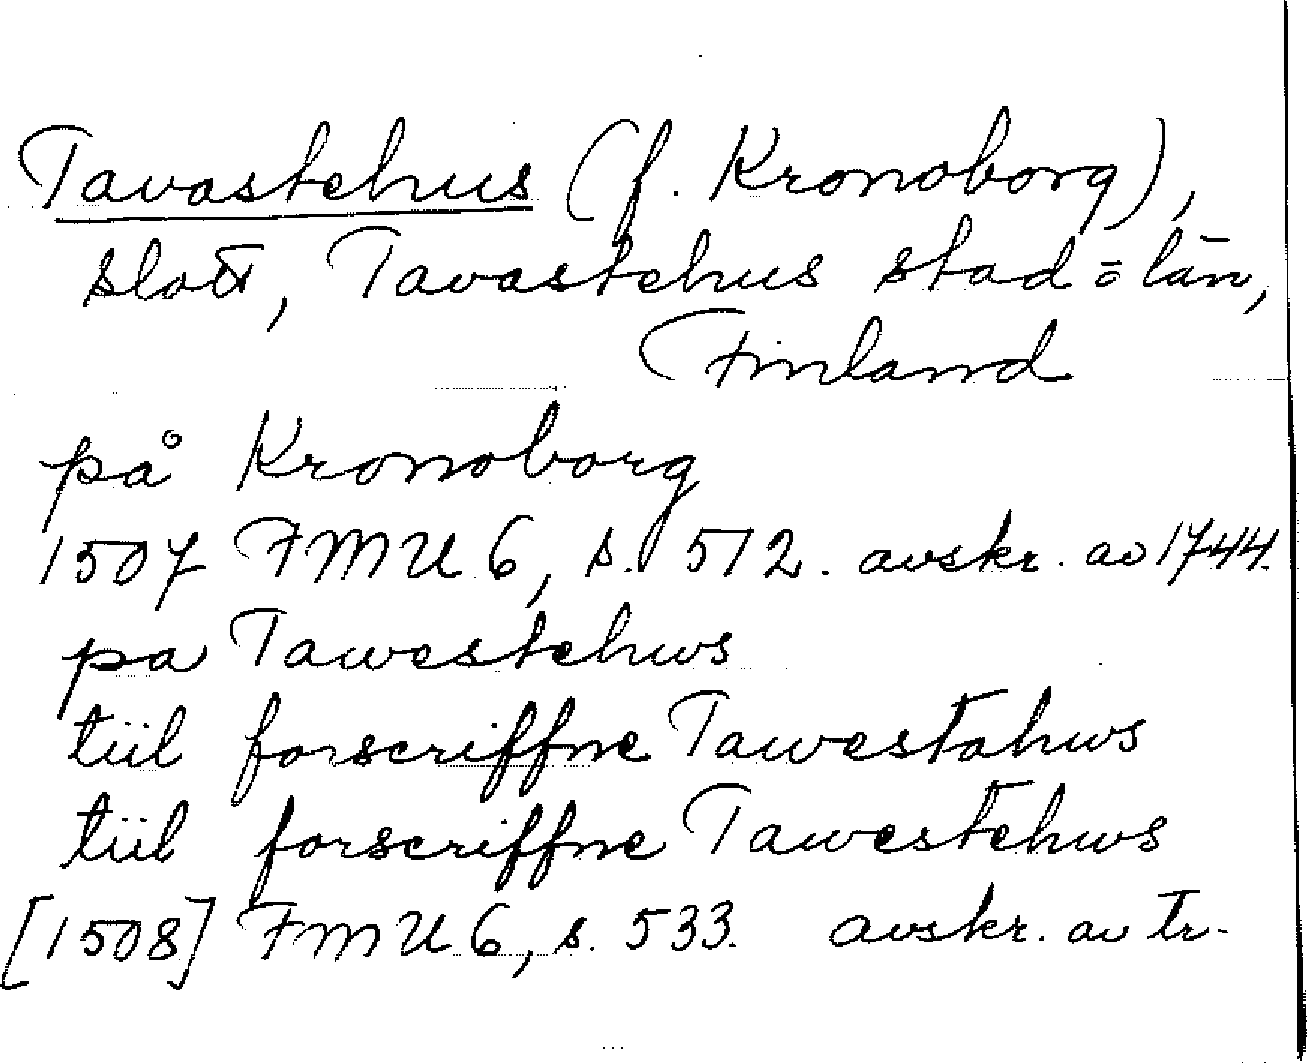 Tavastehus (f. Kronoborg),
slott, Tavastehus stad o län,
Finland
på Kronoborg
1507 FMU 6, s. 512. avskr. av 1744.
pa Tawestehws
tiil forscriffne Tawestahws
tiil forscriffne Tawestehws
[1508] FMU 6, s. 533. avskr. av tr.